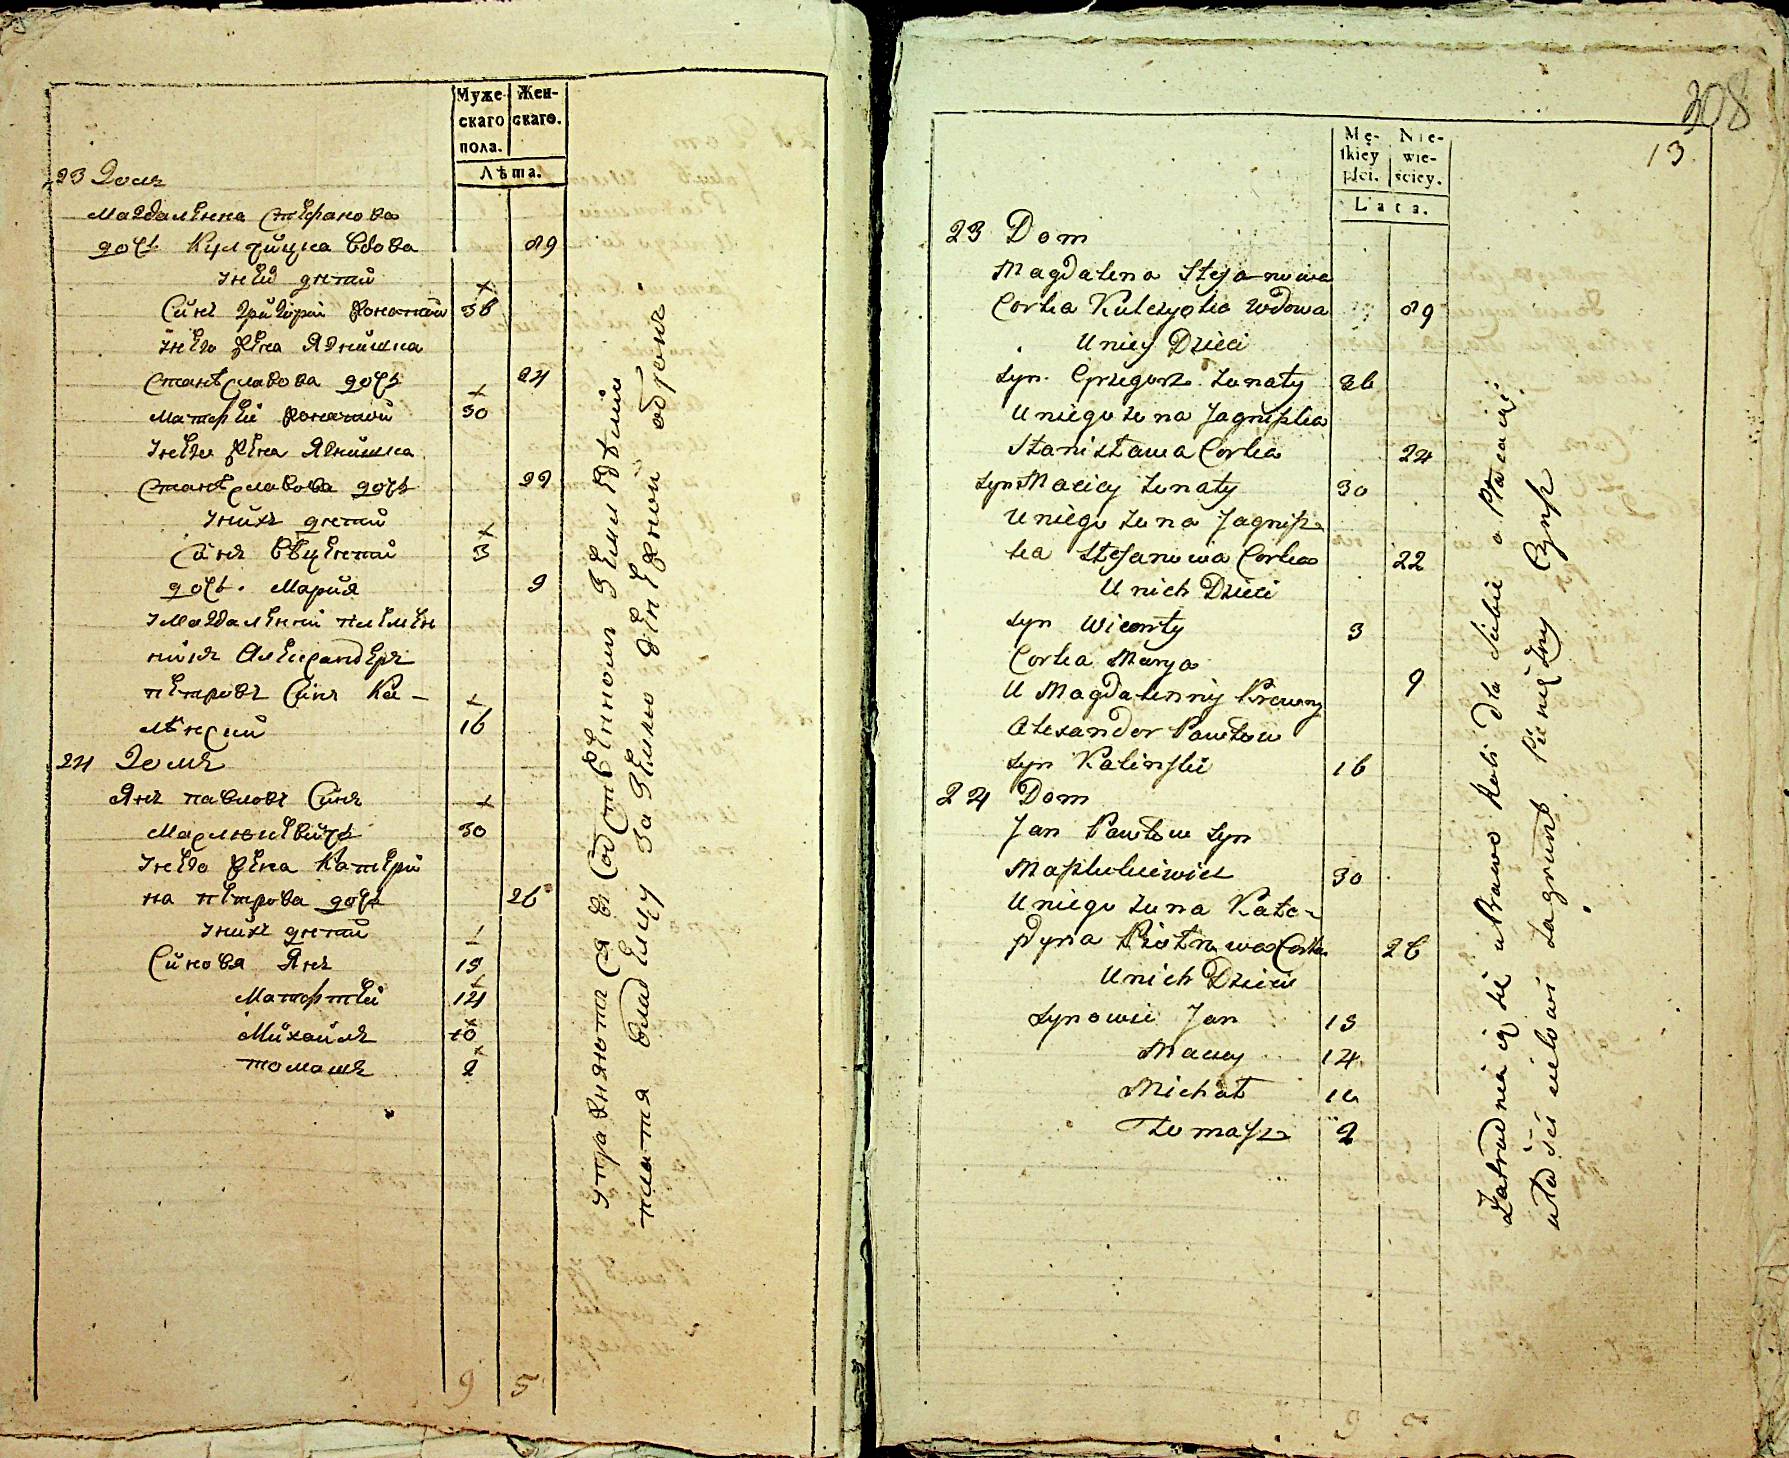 Муже-
скаго
пола.
Жен-
скаго.
Лѣта.
23 Домъ
Магдаленна Стефанова
дочь Кульчицка вдова 89
унеи дѣтей
Синъ Григорий Жонатий 36
унего Жена Ягнишка
Станѣславова дочь 24
Матфей Жонатий 30
унего Жена Ягнишка
Станѣславова дочь 22
унихъ дѣтей
Синъ 3
дочь. Мария 9
умагдаленни племен
никъ Александеръ
петровъ Синъ Ка-
лѣнский 16
24 Домъ
Янъ павловъ Синъ
30
унего Жена Катери
на петрова дочь 26
унихъ дѣтей
Синовя Янъ 15
Матфей 14
Михайлъ 10
томашъ 2
упражняются въ Собственномъ Земледѣлии
платя владелцу За Землю денежний оброкъ
9 5
208
13
Mę-
skiey
płci.
Nie-
wie-
sciey.
Lata.
23 Dom
Magdalena Stefanowa
Corka Kulczycka Wdowa 89
U niey Dzieci
Syn Grzegorz Zonaty 36
U niego Zona Jagniszka
Stanisława Corka 24
Syn Maciey Zonaty 30
U niego Zona Jagnisz
ka Stefanowa Corka 22
U nich Dzieci
Syn Wicenty 3
Corka Marya 9
U Magdalenny Krewny
Alexander Pawłow
Syn Kalinski 16
24 Dom
Jan Pawłow Syn
30
U niego Zona Kata-
rzyna Piotrowa Corka 26
U nich Dzieci
Synowie Jan 15
Maciey 14
Michał 10
Tomasz 2
Zatrudniaią się uprawą Roli Dla Siebie a Płacąc
Właścicielowi Zagrunt Pieniężny Czynsz
9 5